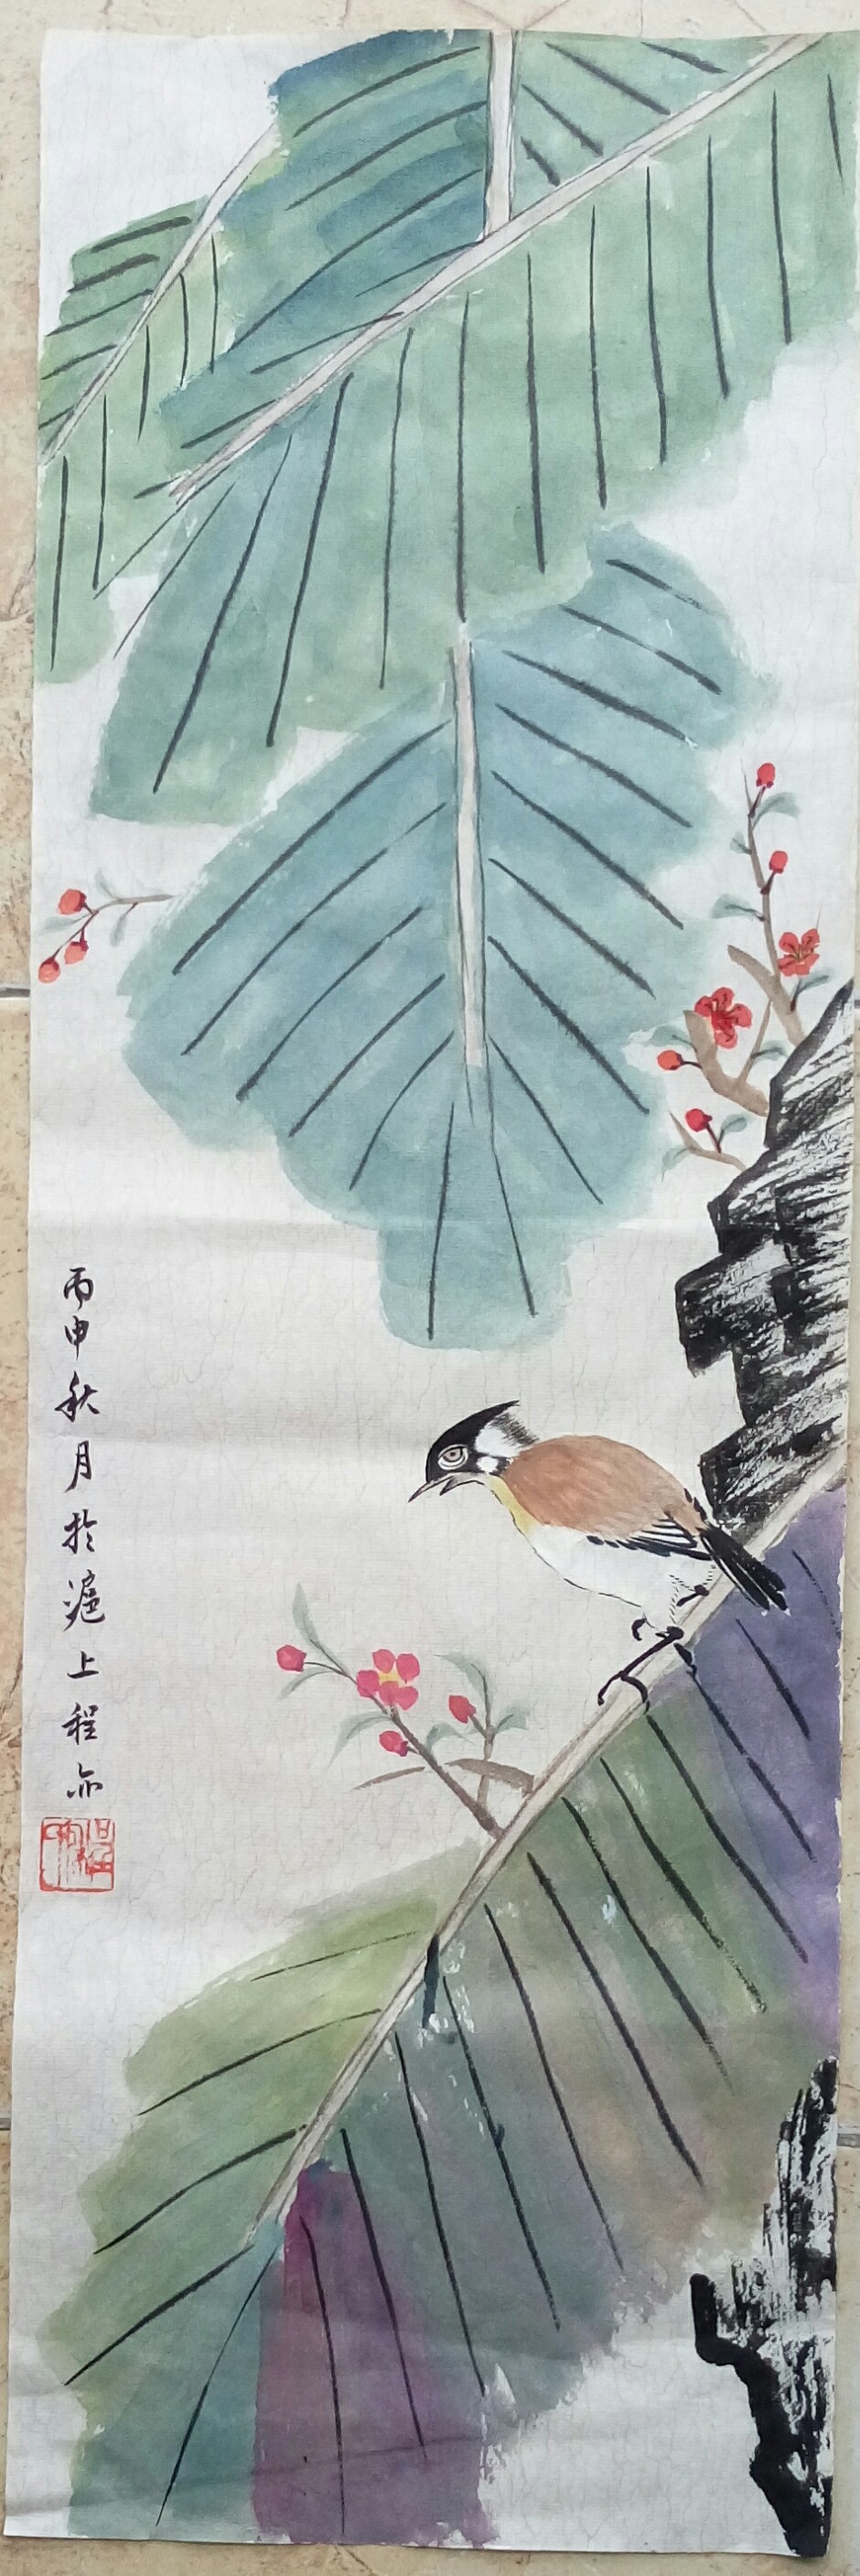 丙申秋月於滬上程亦